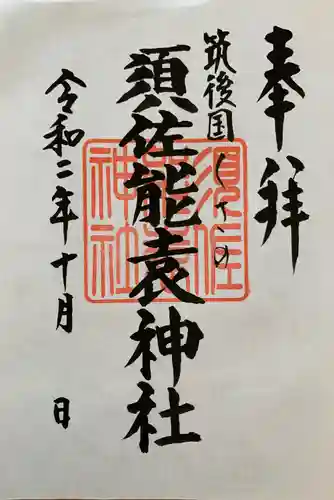 奉拝
筑後国しけの
須佐能袁神社
令和二年十月 日
須佐
神社